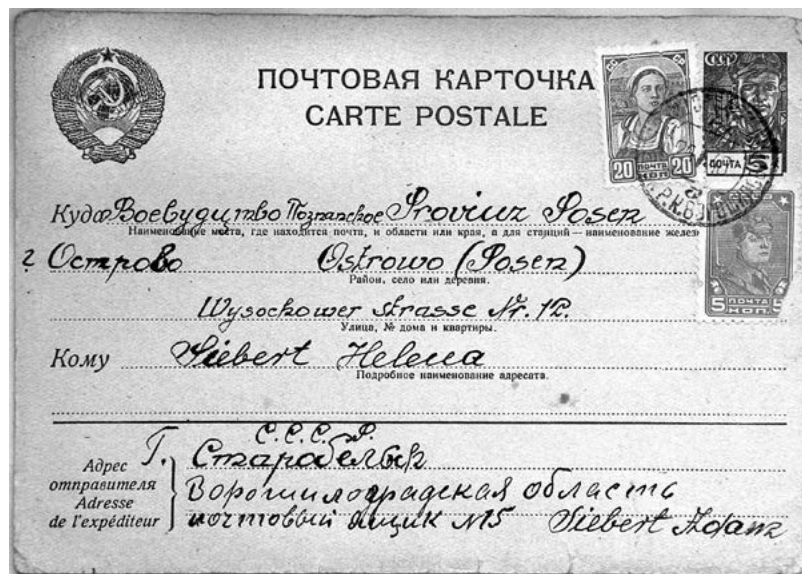 ПОЧТОВАЯ КАРТОЧКА
CARTE POSTALE
СС СР
20 ПОЧТА КОП. 20
СССР
ПОЧТА
Куда Воевудитво Познанское Provinz Posen
Наименование места, где находится почта, и области или края, а для станций — наименование желез
г Острово Ostrowo (Posen)
Район, село или деревня.
5 ПОЧТА КОП. 5
Wysockower strasse Nr. 12.
Улица, № дома и квартиры.
Кому Siebert Helena
Подробное наименование адресата.
С.С.С.Р.
Г. Старобельск
Адрес отправителя
Adresse de l'expéditeur
Ворошилоградская область
почтовый ящик №15 Siebert Adam